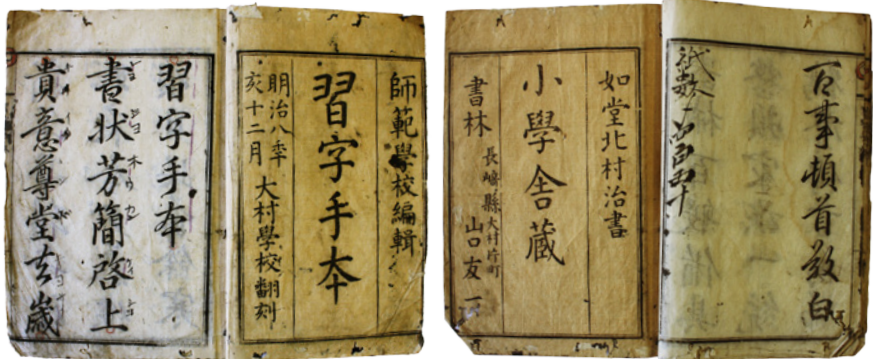 師範學校編輯
習字手本
明治八季
亥十二月
大村學校翻刻
習字手本
書状芳簡啓上
貴意尊堂去歳
百事頓首敬白
如堂北村治書
小學舎蔵
書林
長﨑縣大村片町
山口友一